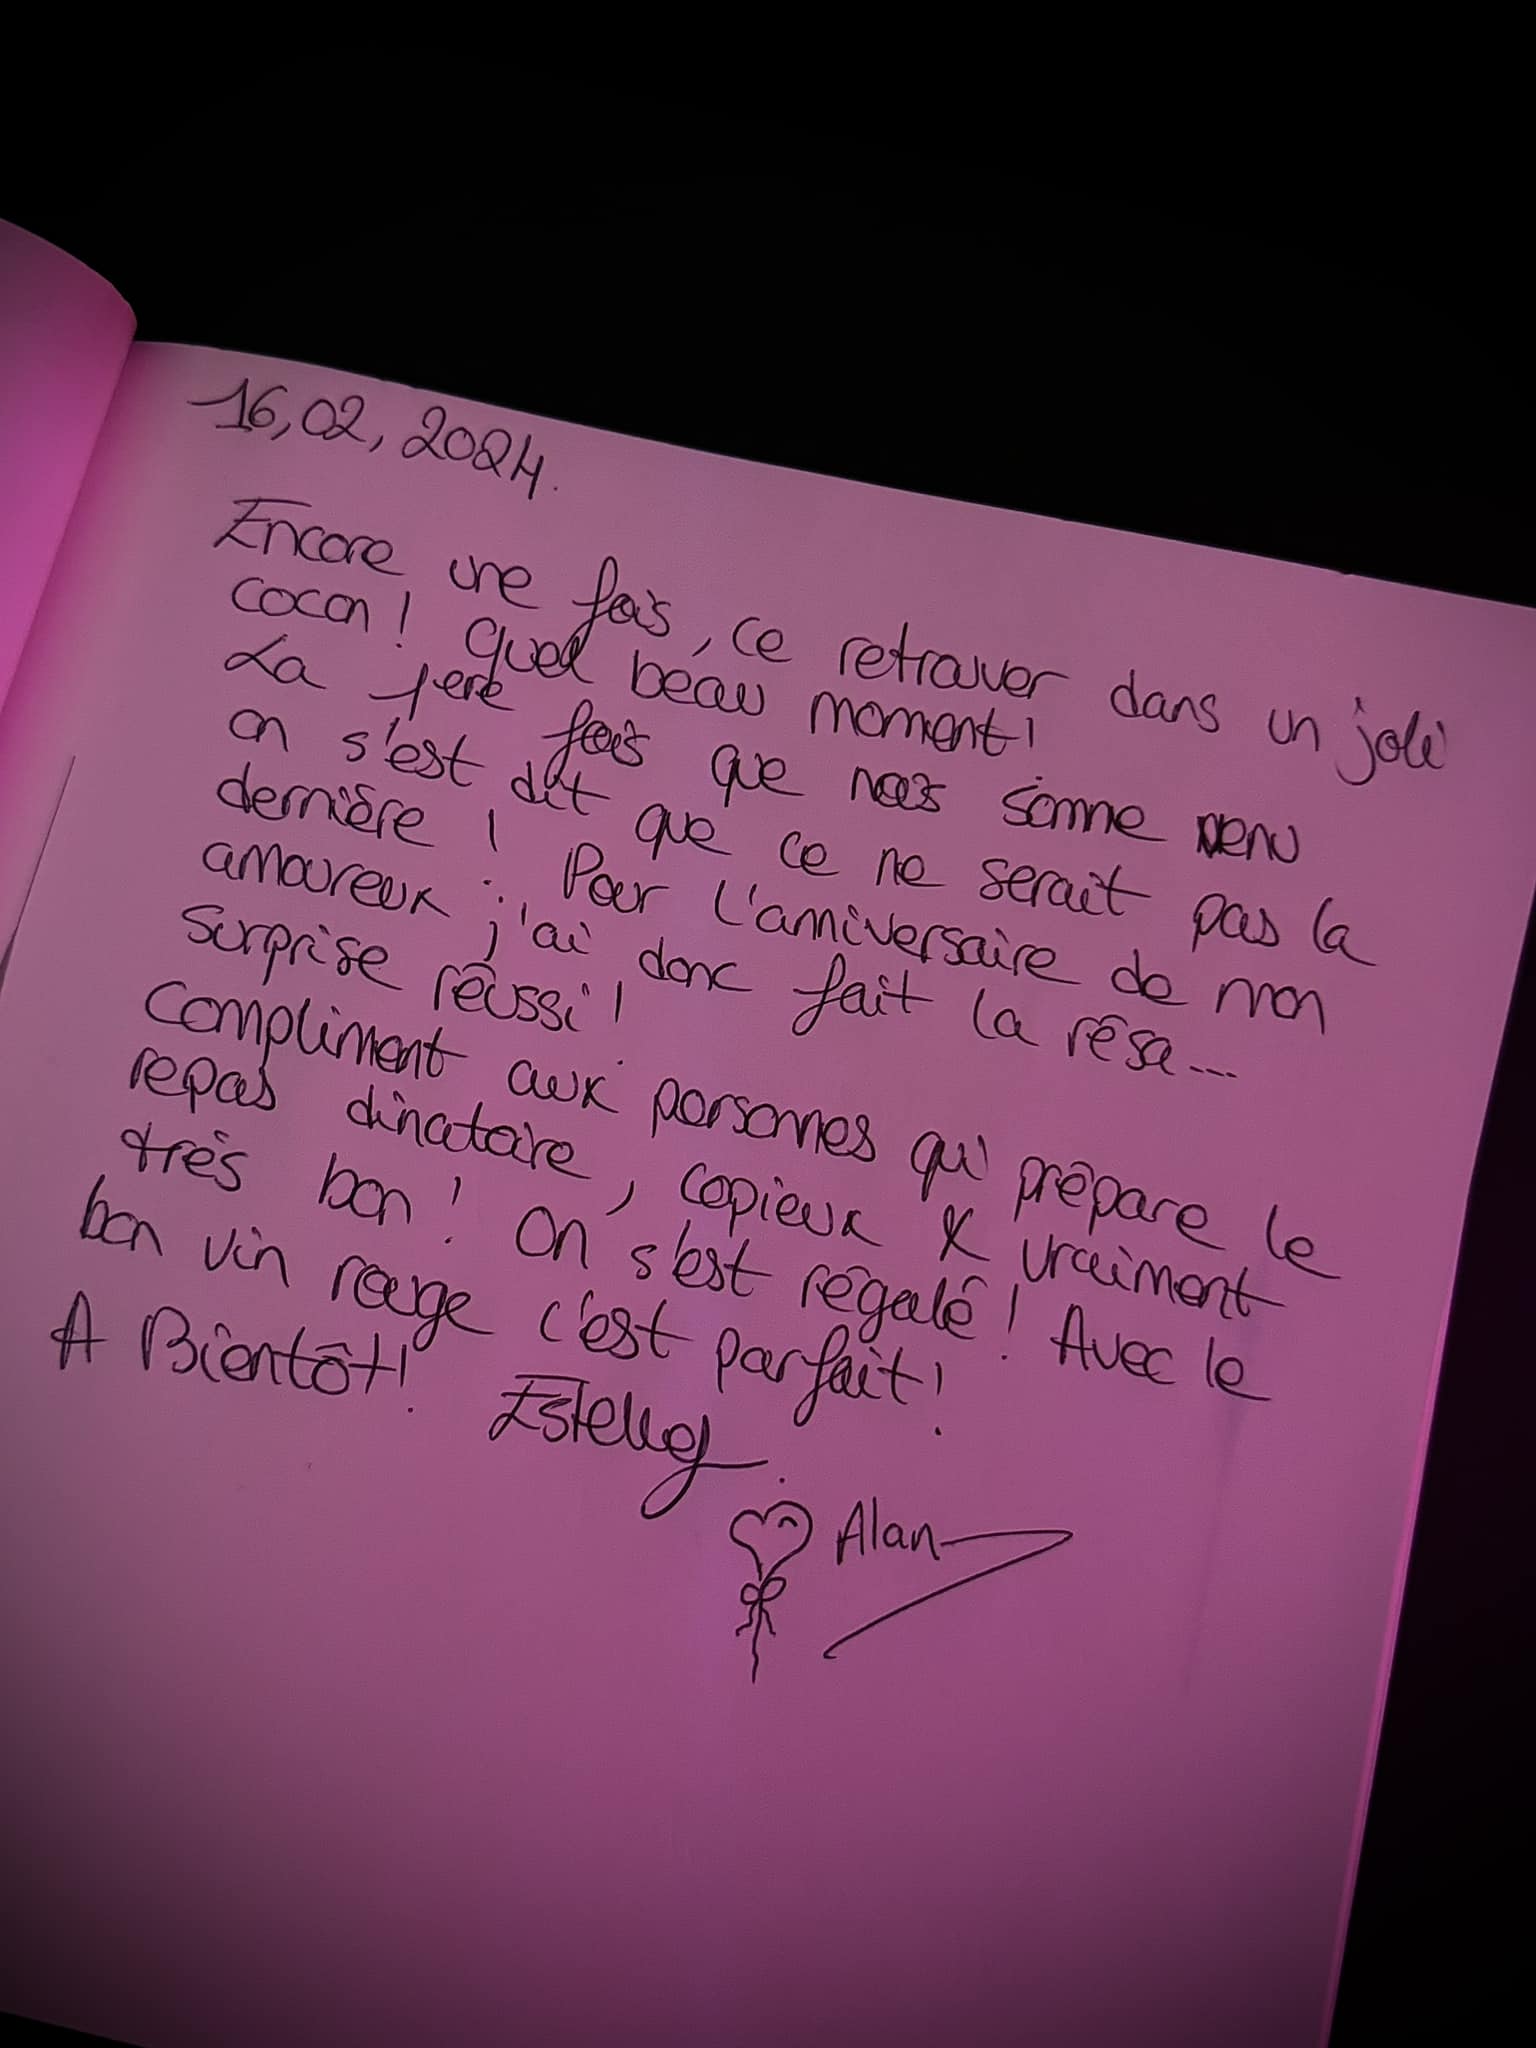 16,02,2024.
Encore une fois, ce retrouver dans un joli
cocon! Quel beau moment!
La 1ere fois que nous somme venu
on s'est dit que ce ne serait pas la
dernière! Pour l'anniversaire de mon
amoureux j'ai donc fait la résa...
Surprise réussi!
Compliment aux personnes qui prépare le
repas dinatoire, copieux & vraiment
très bon! On s'est régalé! Avec le
bon vin rouge c'est parfait!
A Bientôt! Estelle
Alan